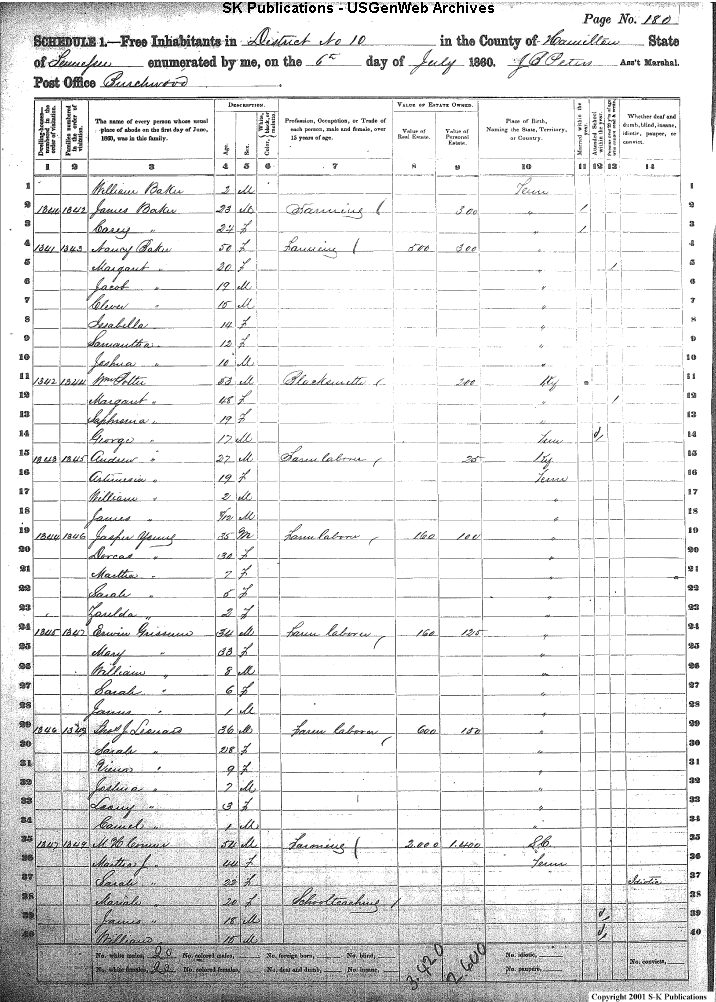 SK Publications - USGenWeb Archives
Page No. 180
SCHEDULE 1.—Free Inhabitants in District No 10 in the County of Hamilton State
of Tennessee enumerated by me, on the 6th day of July 1860. J B Peters Ass't Marshal.
Post Office Burchwood
Dwelling-houses—numbered in the order of visitation.
Families numbered in the order of visitation.
The name of every person whose usual place of abode on the first day of June, 1860, was in this family.
DESCRIPTION.
Age.
Sex.
White, black, or mulatto.
Color,
Profession, Occupation, or Trade of each person, male and female, over 15 years of age.
VALUE OF ESTATE OWNED.
Value of Real Estate.
Value of Personal Estate.
Place of Birth, Naming the State, Territory, or Country.
Married within the year.
Attended School within the year.
Whether deaf and dumb, blind, insane, idiotic, pauper, or convict.
1 2 3 4 5 6 7 8 9 10 11 12 13 14
1 William Baker 2 M Tenn 1
2 1340 1342 James Baker 23 M Farming 300 " / 2
3 Casey " 24 F " / 3
4 1341 1343 Nancy Baker 50 F Farming 500 300 " 4
5 Margaret " 20 F " / 5
6 Jacob " 19 M " 6
7 " 15 M " 7
8 Issabella " 14 F " 8
9 Samantha " 12 F " 9
10 Joshua " 10 M " 10
11 1342 1344 Wm Potter 53 M Blacksmith 200 Ky 11
12 Margaret " 48 F " / 12
13 " 19 F " 13
14 George " 17 M Tenn 14
15 1343 1345 Andrew " 27 M Farm labor 25 Ky 15
16 Artimesia " 19 F Tenn 16
17 William " 2 M " 17
18 James " M " 18
19 1344 1346 Jasper Young 35 M Farm labor 160 100 " 19
20 Dorcas " 30 F " 20
21 Martha " 7 F " 21
22 Sarah " 5 F " 22
23 Zarelda " 2 F " 23
24 1345 1347 Erwin Grissum 34 M Farm laborer 160 125 " 24
25 Mary " 33 F " 25
26 William " 8 M " 26
27 Sarah " 6 F " 27
28 James " 1 M " 28
29 1346 1348 Thos J. Leonard 36 M Farm laborer 600 150 " 29
30 Sarah " 28 F " 30
31 " 9 F " 31
32 Joshua " 7 M " 32
33 " 3 F " 33
34 " 1 M " 34
35 1347 1349 54 M Farming 2.000 1.400 S.C. 35
36 Martha J. " 44 F Tenn 36
37 Sarah " 22 F Idiotic 37
38 Mariah " 20 F Schoolteaching 38
39 James " 18 M 39
40 William 15 M 40
No. white males, 20 No. colored males, No. foreign born, No. blind, 3.420 2600 No. idiotic, No. convicts,
No. white females, 20 No. colored females, No. deaf and dumb, No. insane, No. paupers,
Copyright 2001 S-K Publications